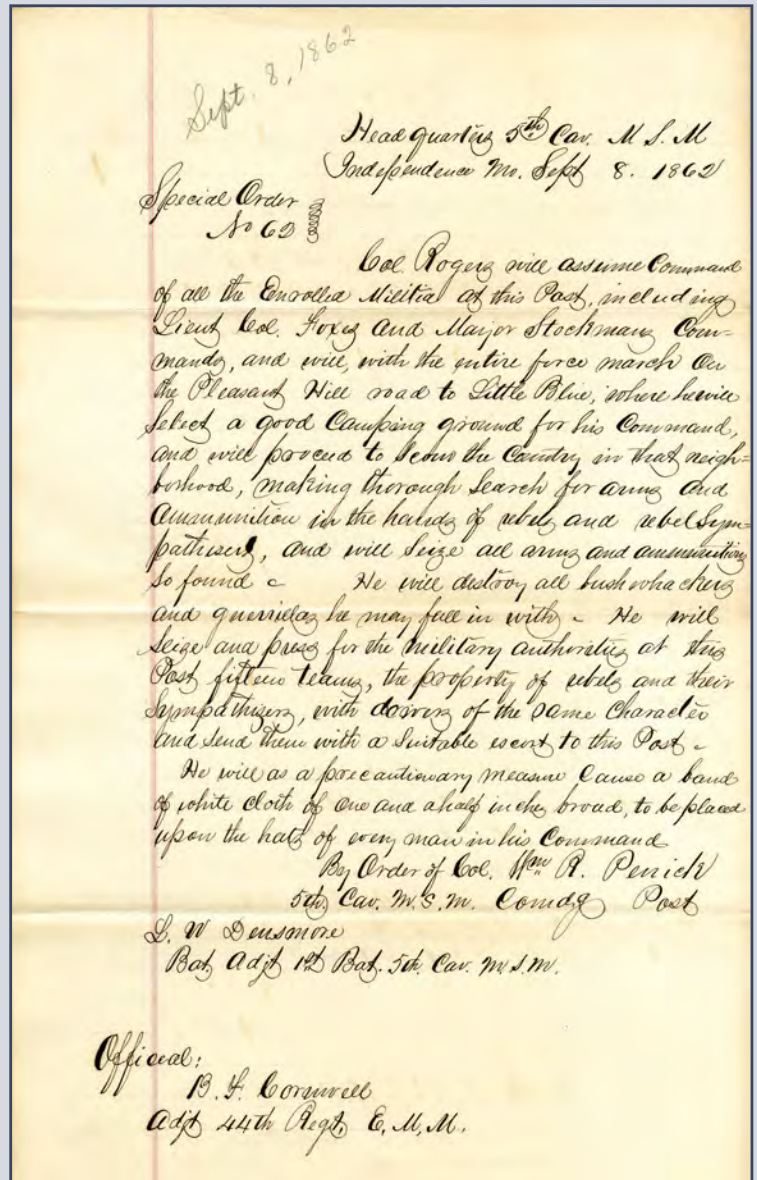 Sept. 8, 1862
Head quarters 5th Cav. M. S. M
Independence Mo. Sept 8. 1862
Special Order
No 62
Col. Rogers will assume Command
of all the Enrolled Militia at this Post, including
Lieut Col. Foxes and Major Stockmans Com=
mands, and will, with the entire force march on
the Pleasant Hill road to Little Blue, where he will
select a good Camping ground for his Command,
and will proceed to scour the Country in that neigh=
borhood, making thorough search for arms and
ammunition in the hands of rebels and rebel Sym=
pathisers, and will seize all arms and ammunition
so found - He will destroy all bushwhackers
and guerrillas he may fall in with - He will
seize and press for the military authorities at this
Post fifteen teams, the property of rebels and their
Sympathizers, with drivers of the same Character
and send them with a suitable escort to this Post -
He will as a precautionary measure Cause a band
of white cloth of one and a half inches broad, to be placed
upon the hats of every man in his Command
By Order of Col. Wm R. Penick
5th Cav. M. S. M. Comdg Post
L. W Densmore
Bat Adjt 1st Bat. 5th Cav. M. S. M.
Official:
B. F. Cornwell
Adjt 44th Regt, E. M, M.